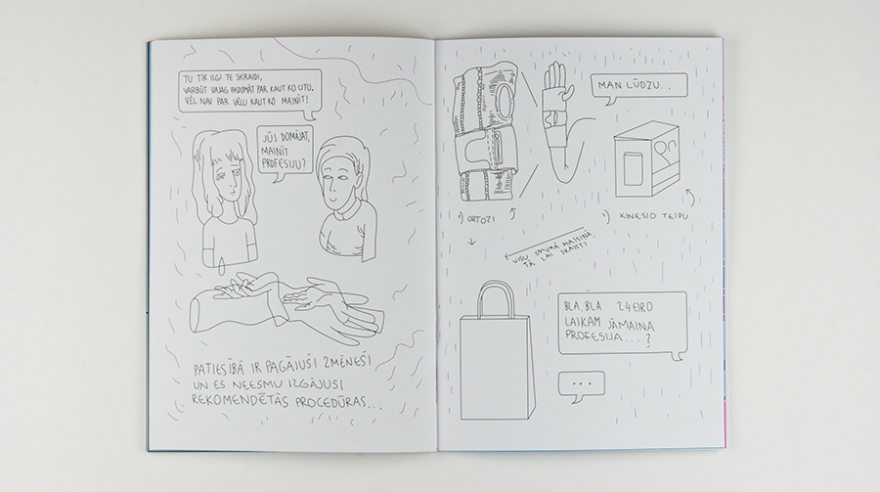 TU TIK ILGI TE SKRAIDI,
VARBŪT VAJAG PADOMĀT PAR KAUT KO CITU.
VĒL NAV PAR VĒLU KAUT KO MAINĪT!
JŪS DOMĀJAT,
MAINĪT
PROFESIJU?
PATIESĪBĀ IR PAGĀJUŠI 2 MĒNEŠI
UN ES NEESMU IZGĀJUSI
REKOMENDĒTĀS PROCEDŪRAS...
MAN LŪDZU...
1) ORTOZI
KINESIO TEIPU
VISU SMUKĀ MAISIŅĀ
TĀ LAI SKAISTI
BLA, BLA 24 EIRO
LAIKAM JĀMAINA
PROFESIJA...?
...